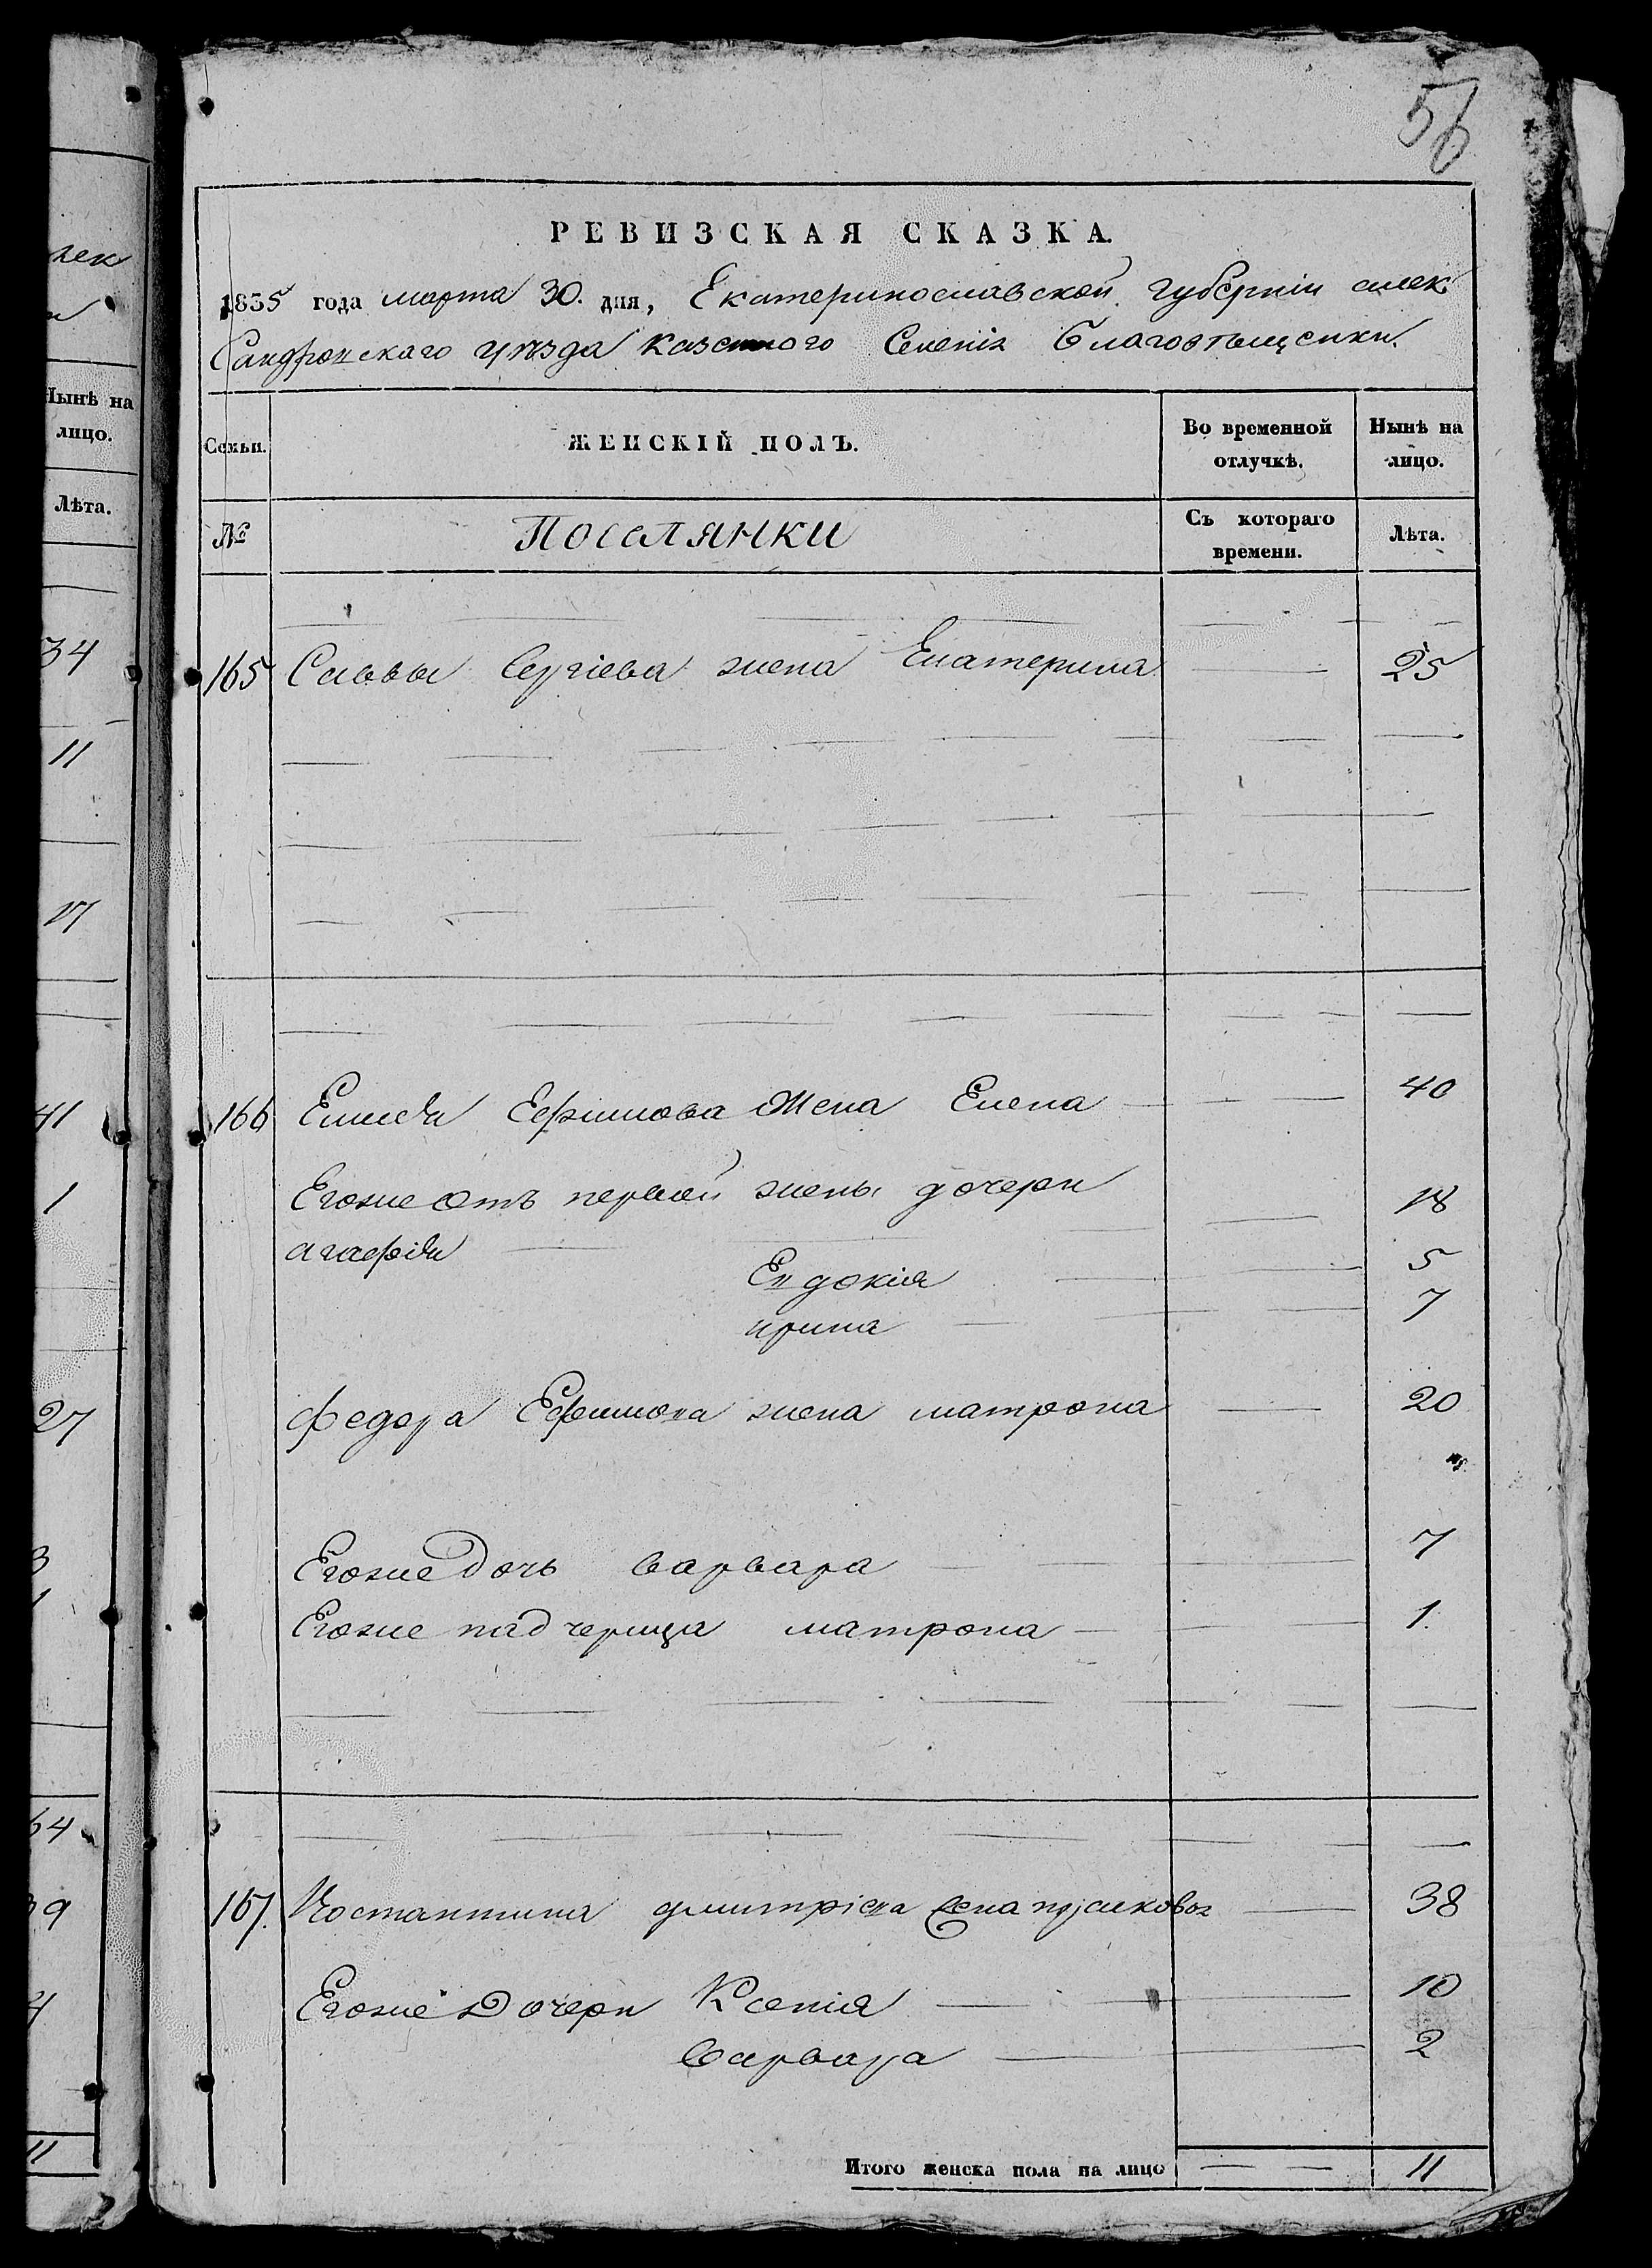 лек
Нынѣ на
лицо.
Лѣта.
34
11
17
41
1
27
3
64
39
11
56
РЕВИЗСКАЯ СКАЗКА.
1835 года марта 30. дня, Екатеринославской губерніи алек
Сандровскаго уѣзда казенного Селенія Благовѣщенки.
Семьи. ЖЕНСКІЙ ПОЛЪ. Во временной отлучкѣ. Нынѣ на лицо.
№ Поселянки Съ котораго времени. Лѣта.
165 Саввы Сергіева жена Екатерина 25
166 Елисея Ефимова Жена Елена 40
Егоже отъ первой жены дочери 18
агафія
Евдокія 5
ирина 7
федора Ефимова жена матрона 20
Егоже Дочь варвара 7
Егоже падчерица матрона 1.
167. Костантина димитріева жена 38
Егоже Дочери Ксенія 10
Варвара 2
Итого женска пола на лицо 11